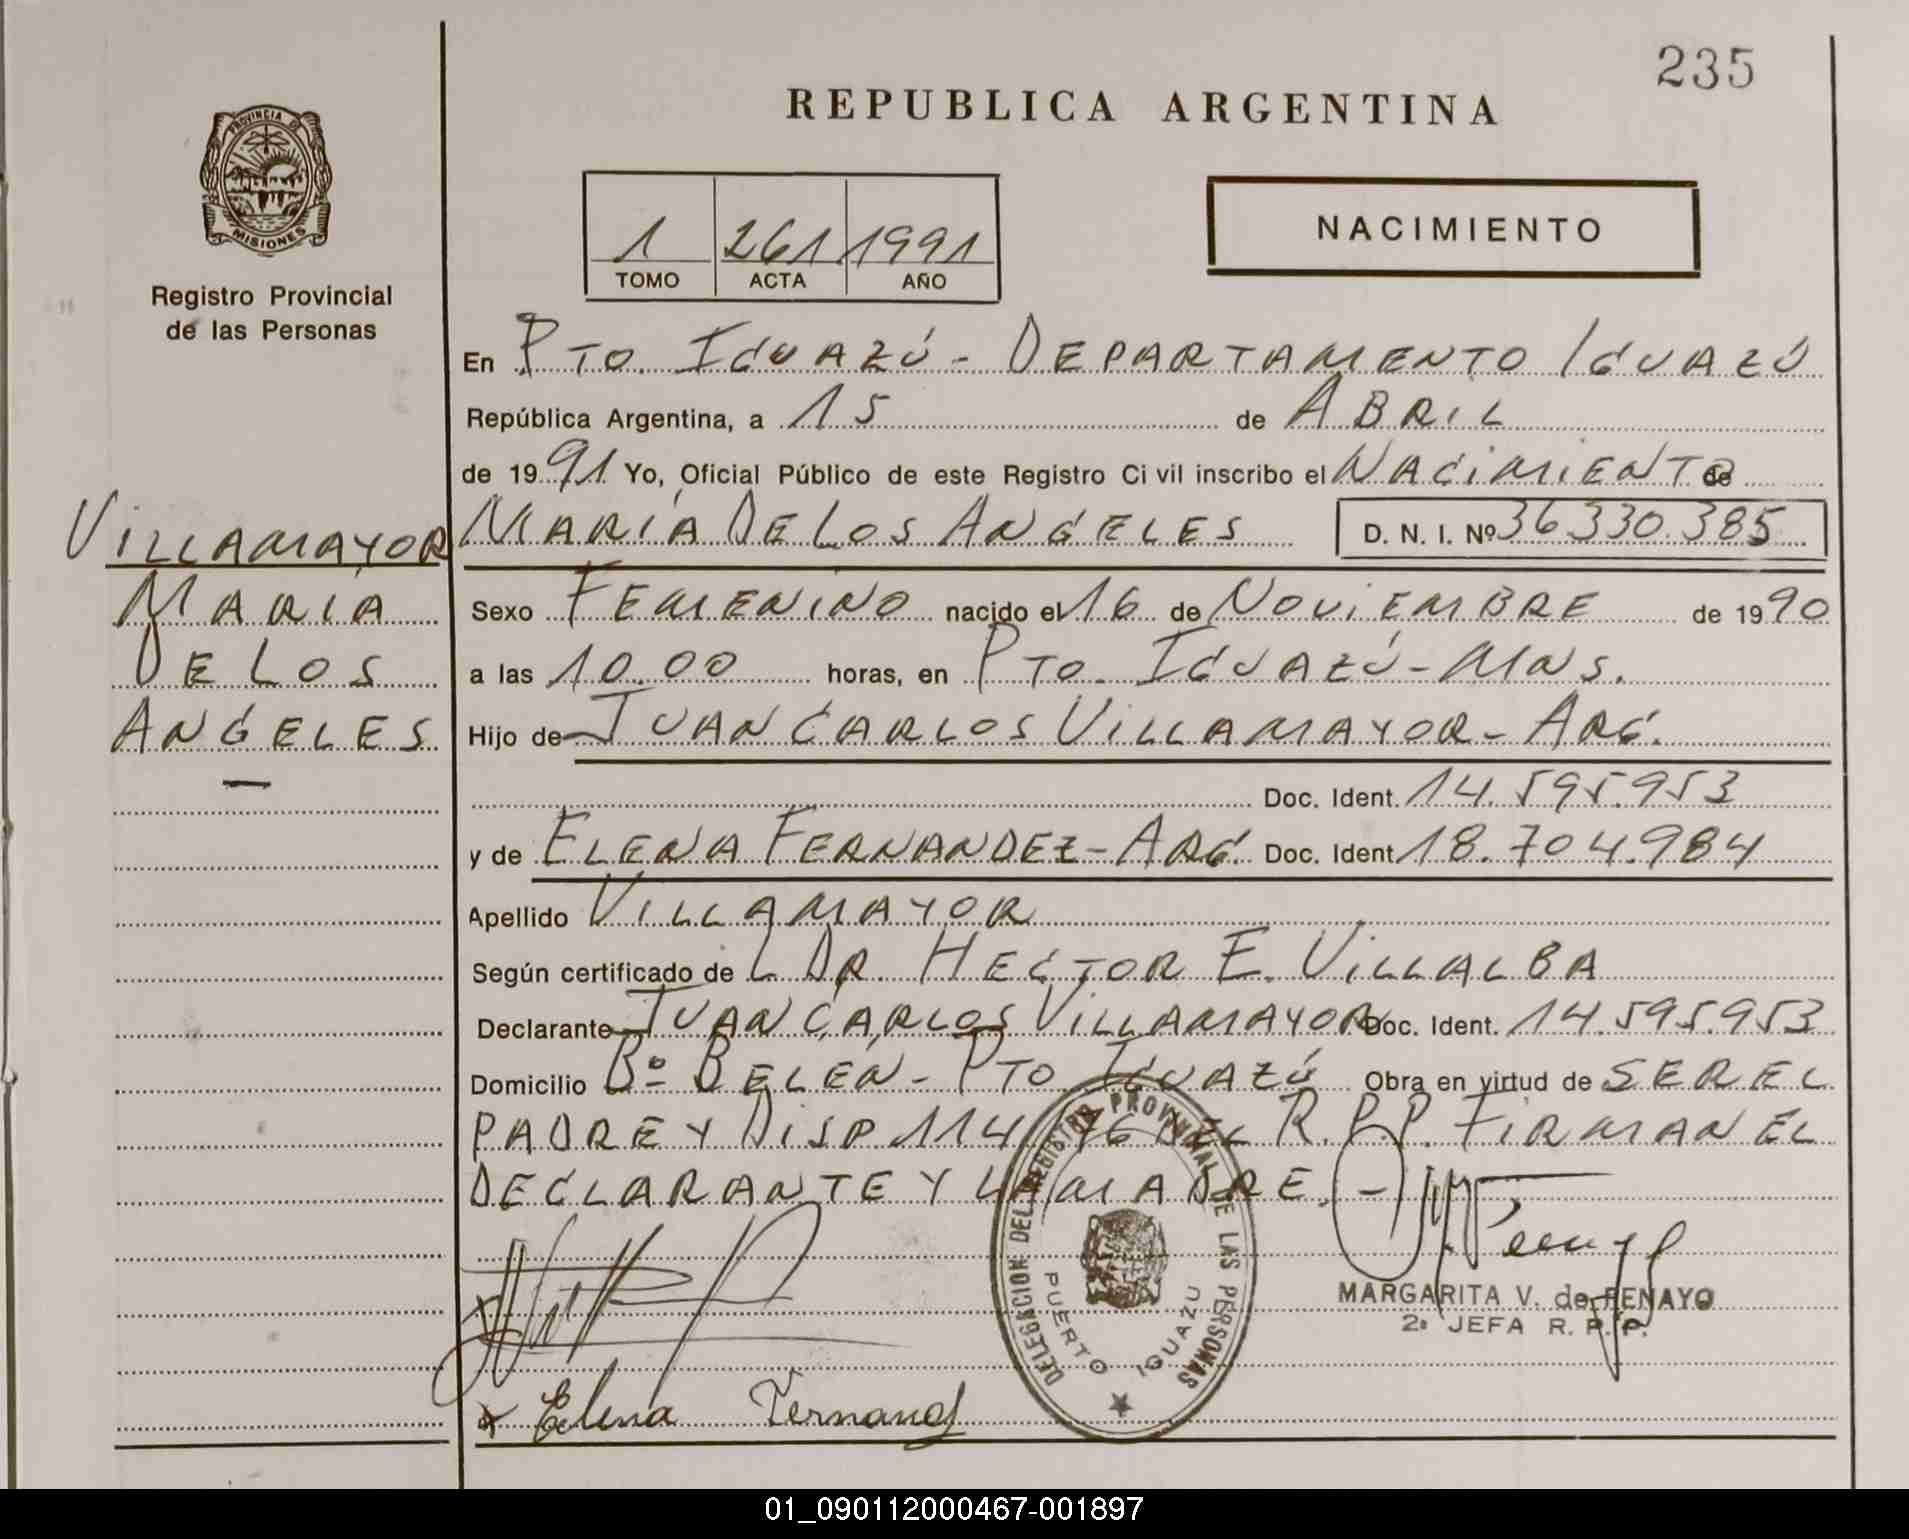 235
REPUBLICA ARGENTINA
PROVINCIA DE
MISIONES
Registro Provincial
de las Personas
1 261 1991
TOMO ACTA AÑO
NACIMIENTO
En PTO. IGUAZÚ - DEPARTAMENTO IGUAZÚ
República Argentina, a 15 de ABRIL
de 1991 Yo, Oficial Público de este Registro Civil inscribo el NACIMIENTO de
VILLAMAYOR
MARÍA
DE LOS
ANGELES
MARÍA DE LOS ANGELES D. N. I. Nº 36.330.385
Sexo FEMENINO nacido el 16 de NOVIEMBRE de 1990
a las 10.00 horas, en PTO. IGUAZÚ - MNS.
Hijo de JUAN CARLOS VILLAMAYOR - ARG.
Doc. Ident. 14.595.953
y de ELENA FERNANDEZ - ARG. Doc. Ident 18.704.984
Apellido VILLAMAYOR
Según certificado de L DR. HECTOR E. VILLALBA
Declarante JUAN CARLOS VILLAMAYOR Doc. Ident. 14.595.953
Domicilio Bº BELÉN - PTO IGUAZÚ Obra en virtud de SER EL
PADRE Y DISP. 114/76 DEL R.P.P. FIRMAN EL
DECLARANTE Y LA MADRE. -
DELEGACION DEL REGISTRO PROVINCIAL DE LAS PERSONAS
PUERTO IGUAZU
MARGARITA V. de PENAYO
2ª JEFA R. P. P.
x Elena Fernand
01_090112000467-001897